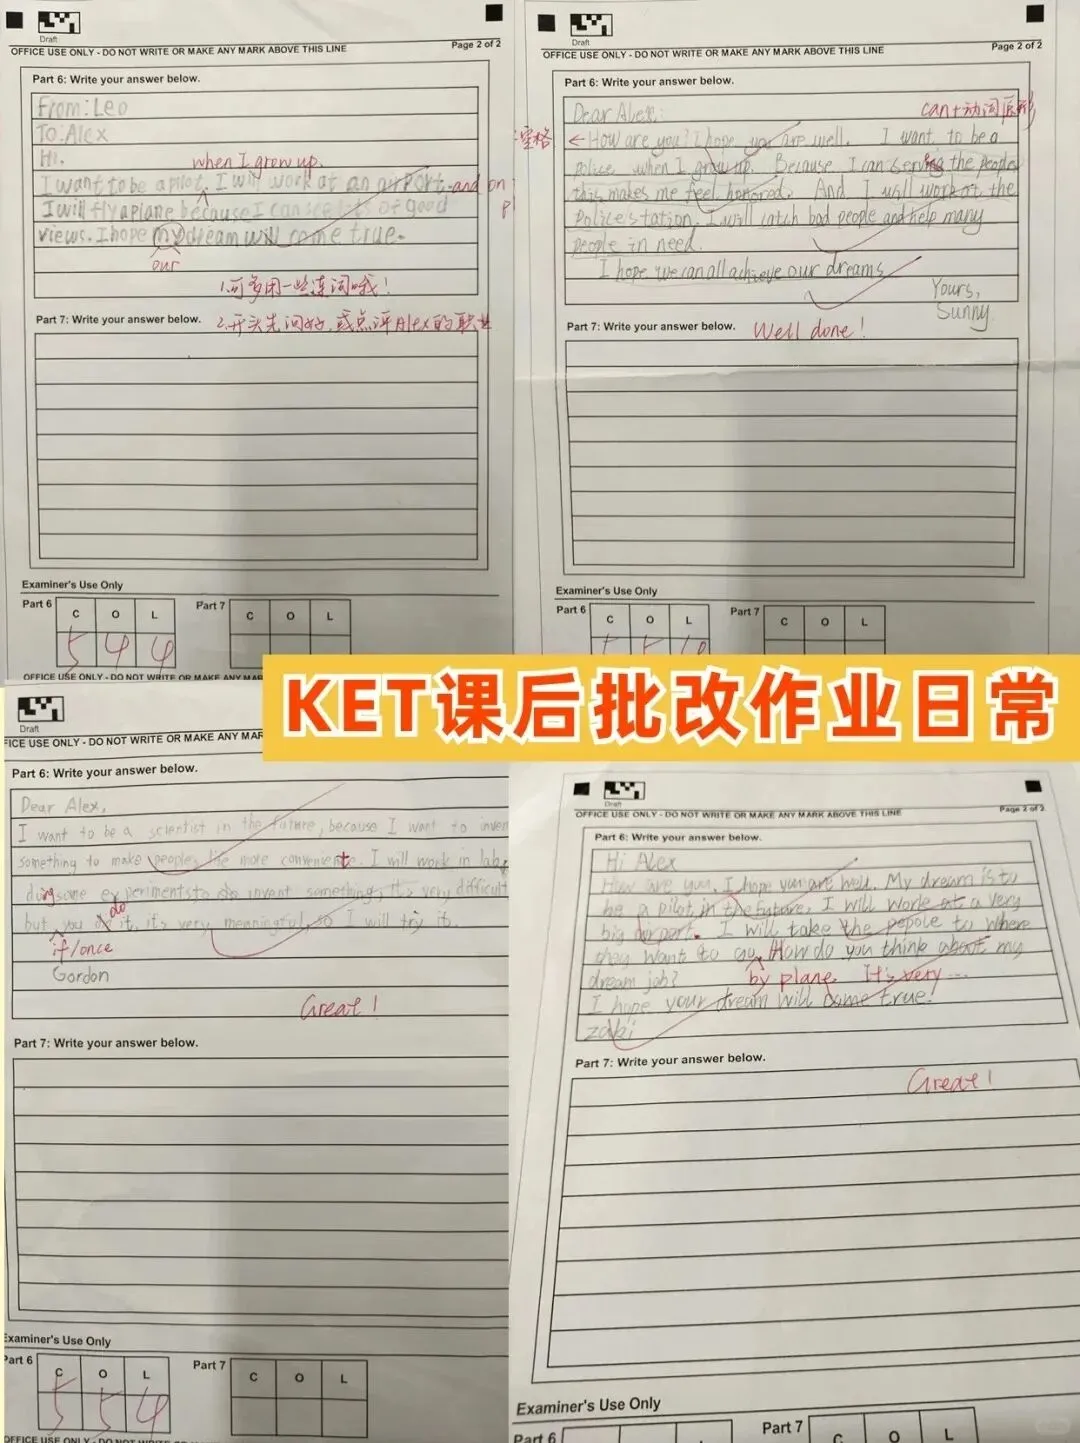 Draft
OFFICE USE ONLY - DO NOT WRITE OR MAKE ANY MARK ABOVE THIS LINE
Page 2 of 2
Part 6: Write your answer below.
From: Leo
To: Alex
Hi.
when I grow up.
I want to be a pilot. I will work at an airport. and on
I will fly a plane because I can see lots of good
views. I hope my dream will come true.
our
1.可多用一些连词哦!
Part 7: Write your answer below.
2.开头先问好,或点评Alex的职业
Examiner's Use Only
Part 6
C O L
5 4 4
Part 7
C O L
OFFICE USE ONLY - DO NOT WRITE OR MAKE ANY MAR
Draft
OFFICE USE ONLY - DO NOT WRITE OR MAKE ANY MARK ABOVE THIS LINE
Page 2 of 2
Part 6: Write your answer below.
Dear Alex:
can+动词原形
空格
← How are you? I hope you are well. I want to be a
police when I grow up. Because I can serving the people
this makes me feel honored. And I will work at the
Police station. I will catch bad people and help many
people in need.
I hope we can all achieve our dreams
Yours,
Sunny
Part 7: Write your answer below.
Well done!
Examiner's Use Only
Part 6
C O L
Part 7
C O L
KET课后批改作业日常
Draft
FICE USE ONLY - DO NOT WRITE OR MAKE ANY MAR
Part 6: Write your answer below.
Dear Alex,
I want to be a scientist in the future, because I want to inven
something to make people life more convenient. I will work in lab,
doing some experiments to invent something, it's very difficult
do
but you it, it's very meaningful, so I will try it.
if/once
Gordon
Great!
Part 7: Write your answer below.
Examiner's Use Only
Part 6
C O L
5 5 4
Part 7
C O L
OFFICE USE ONLY - DO NOT WRITE OR
Draft
OFFICE USE ONLY - DO NOT WRITE OR MAKE ANY MARK ABOVE THIS LINE
Page 2 of 2
Part 6: Write your answer below.
Hi Alex
How are you, I hope you art well. My dream is to
be a pilot in the future, I will work at a very
big airport. I will take the pepole to where
they want to go, How do you think about my
dream job?
by plane. It's very ...
I hope your dream will came true!
zaki
Part 7: Write your answer below.
Great!
Examiner's Use Only
Part 6
Part 7
C O L